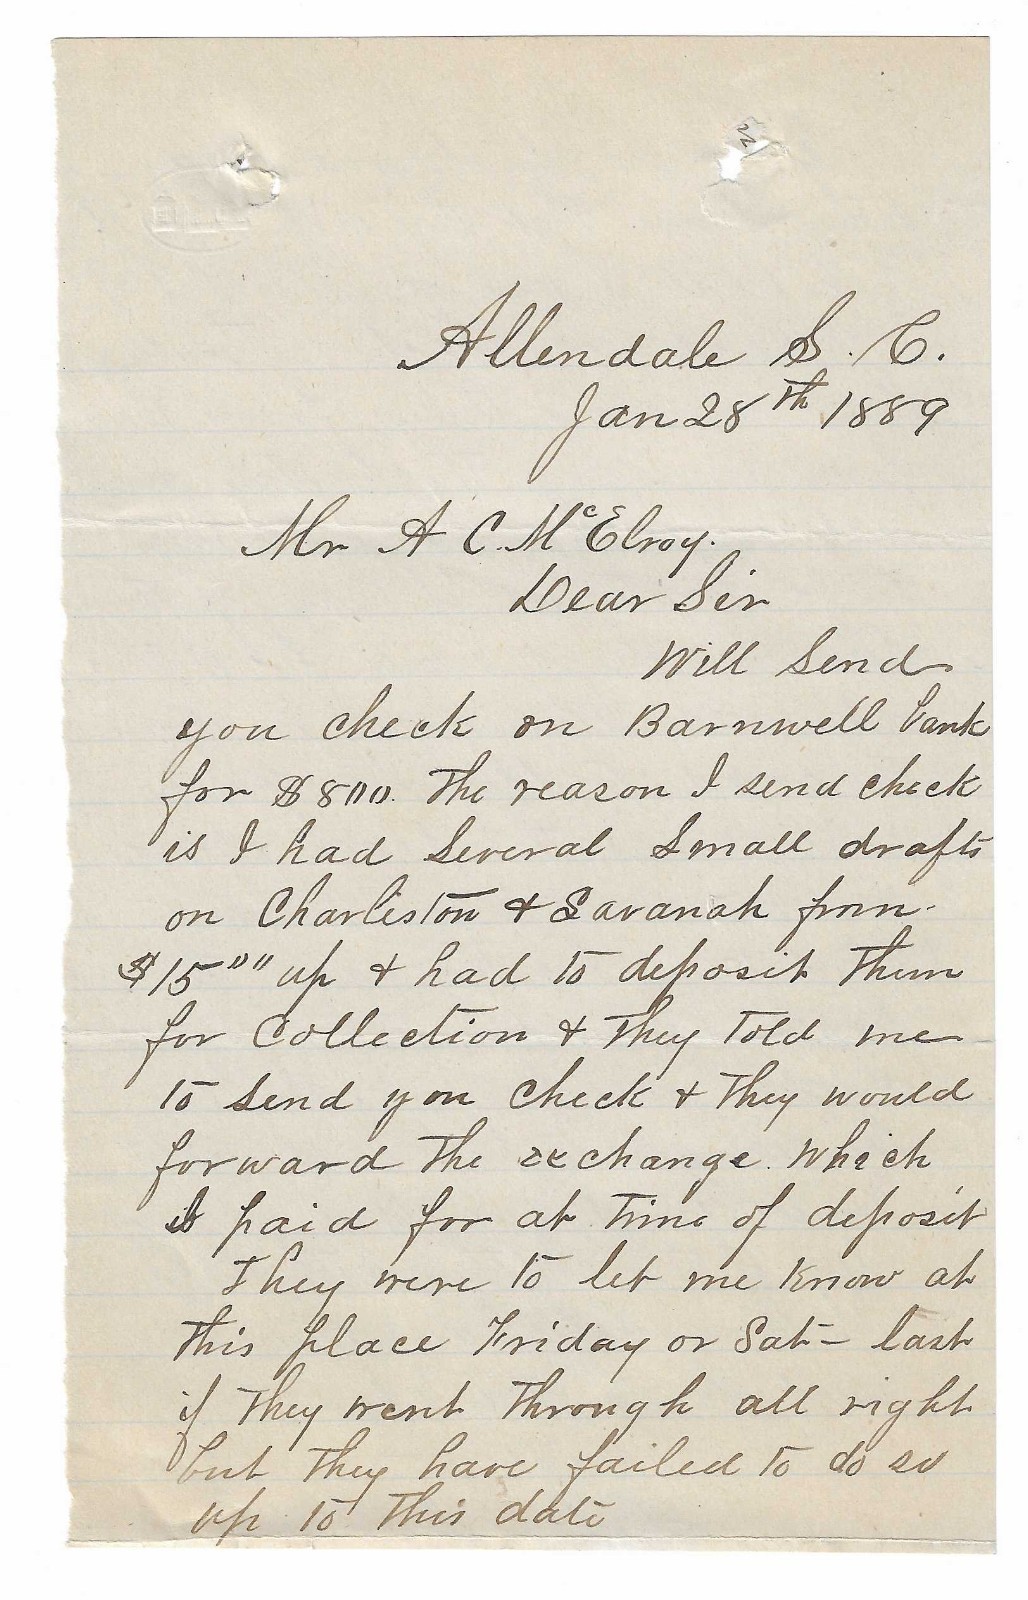 Allendale S. C.
Jan 28th 1889
Mr A C. McElroy.
Dear Sir
Will Send
you check on Barnwell bank
for $800. The reason I send check
is I had Several Small drafts
on Charleston & Savanah from
$15"" up & had to deposit them
for Collection & They Told me
to Send you Check & They would
forward the exchange. Which
is paid for at Time of deposit
They were to let me know at
This place Friday or Sat- last
if They went Through all right
but They have failed to do so
up to This date